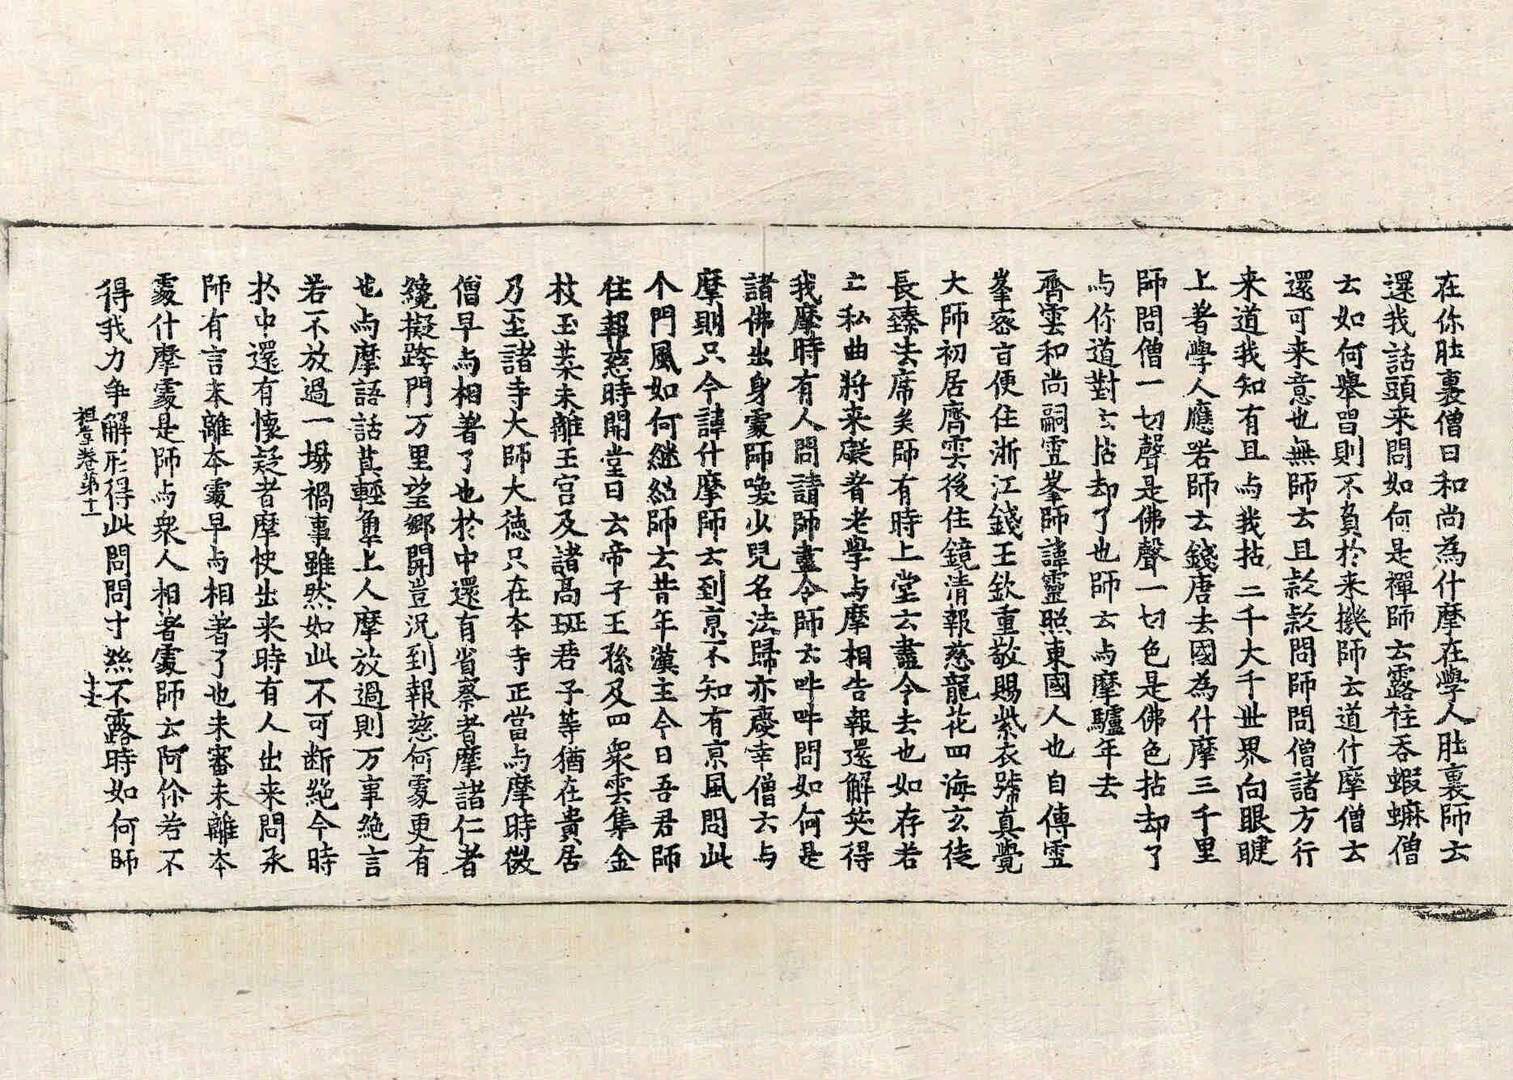 在你肚裏僧曰和尚為什摩在學人肚裏師云
還我話頭来問如何是禪師云露柱吞蝦蟆僧
云如何舉曽則不負於来機師云道什摩僧云
還可来意也無師云且款款問師問僧諸方行
来道我知有且与我拈二千大千世界向眼睫
上著學人應喏師云錢唐去國為什摩三千里
師問僧一切聲是佛聲一切色是佛色拈却了
与你道對云拈却了也師云与摩驢年去
齊雲和尚嗣雪峯師諱靈照東國人也自傳雪
峯密言便住浙江錢王欽重敬賜紫衣號真覺
大師初居齊雲後住鏡清報慈龍花四海玄徒
長臻法席矣師有時上堂云盡令去也如存若
亡私曲將来礙著老學与摩相告報還解笑得
我摩時有人問請師盡令師云吽吽問如何是
諸佛出身處師喚少兒名法歸亦慶幸僧云与
摩則只今諱什摩師云到京不知有京風問此
个門風如何継紹師云昔年漢主今日吾君師
住報慈時開堂日云帝子王孫及四衆雲集金
枝玉葉未離王宮及諸髙班君子等猶在貴居
乃至諸寺大師大徳只在本寺正當与摩時徴
僧早与相著了也於中還有省察者摩諸仁者
纔擬跨門万里望鄉關豈況到報慈何處更有
也与摩語話莫軽皐上人摩放過則万事絶言
若不放過一場禍事雖然如此不可断絶今時
於中還有懷疑者摩快出来時有人出来問承
師有言未離本處早与相著了也未審未離本
處什摩處是師与衆人相著處師云阿你若不
得我力争解形得此問問寸絲不露時如何師
祖堂巻第十一